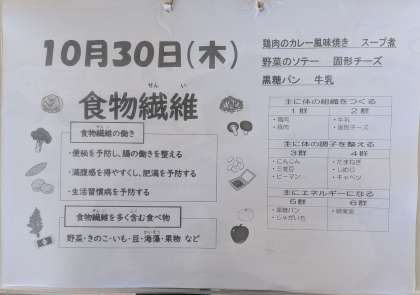 10月30日(木)
鶏肉のカレー風味焼き　スープ煮
野菜のソテー　固形チーズ
黒糖パン　牛乳
せん い
食物繊維
食物繊維の働き
・便秘を予防し、腸の働きを整える
・満腹感を得やすくし、肥満を予防する
・生活習慣病を予防する
食物繊維を多く含む食べ物
かいそう
野菜・きのこ・いも・豆・海藻・果物 など
主に体の組織をつくる
1群　2群
・鶏肉　・牛乳
・豚肉　・固形チーズ
主に体の調子を整える
3群　4群
・にんじん　・たまねぎ
・三度豆　・しめじ
・ピーマン　・キャベツ
主にエネルギーになる
5群　6群
・黒糖パン
・じゃがいも